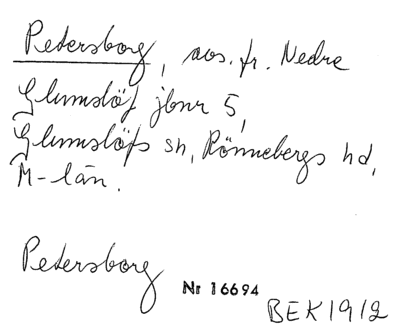 Petersborg, avs. fr. Nedre
Glumslöf jbnr 5,
Glumslöfs sn, Rönnebergs hd,
M-län.
Petersborg
Nr 16694
BEK 1912